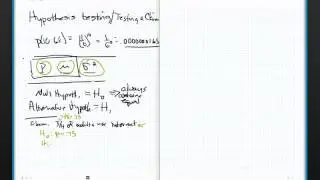 Hypothesis testing/Testing a Claim
p(10 6s) = (1/6)^10 = 1/6^10 = .0000000165
p μ σ²
Null Hypoth. = H₀ = always contains equal
Alternative Hypoth = H₁
Claim: 75% of adults use internet
H₀: p = .75
H₁: